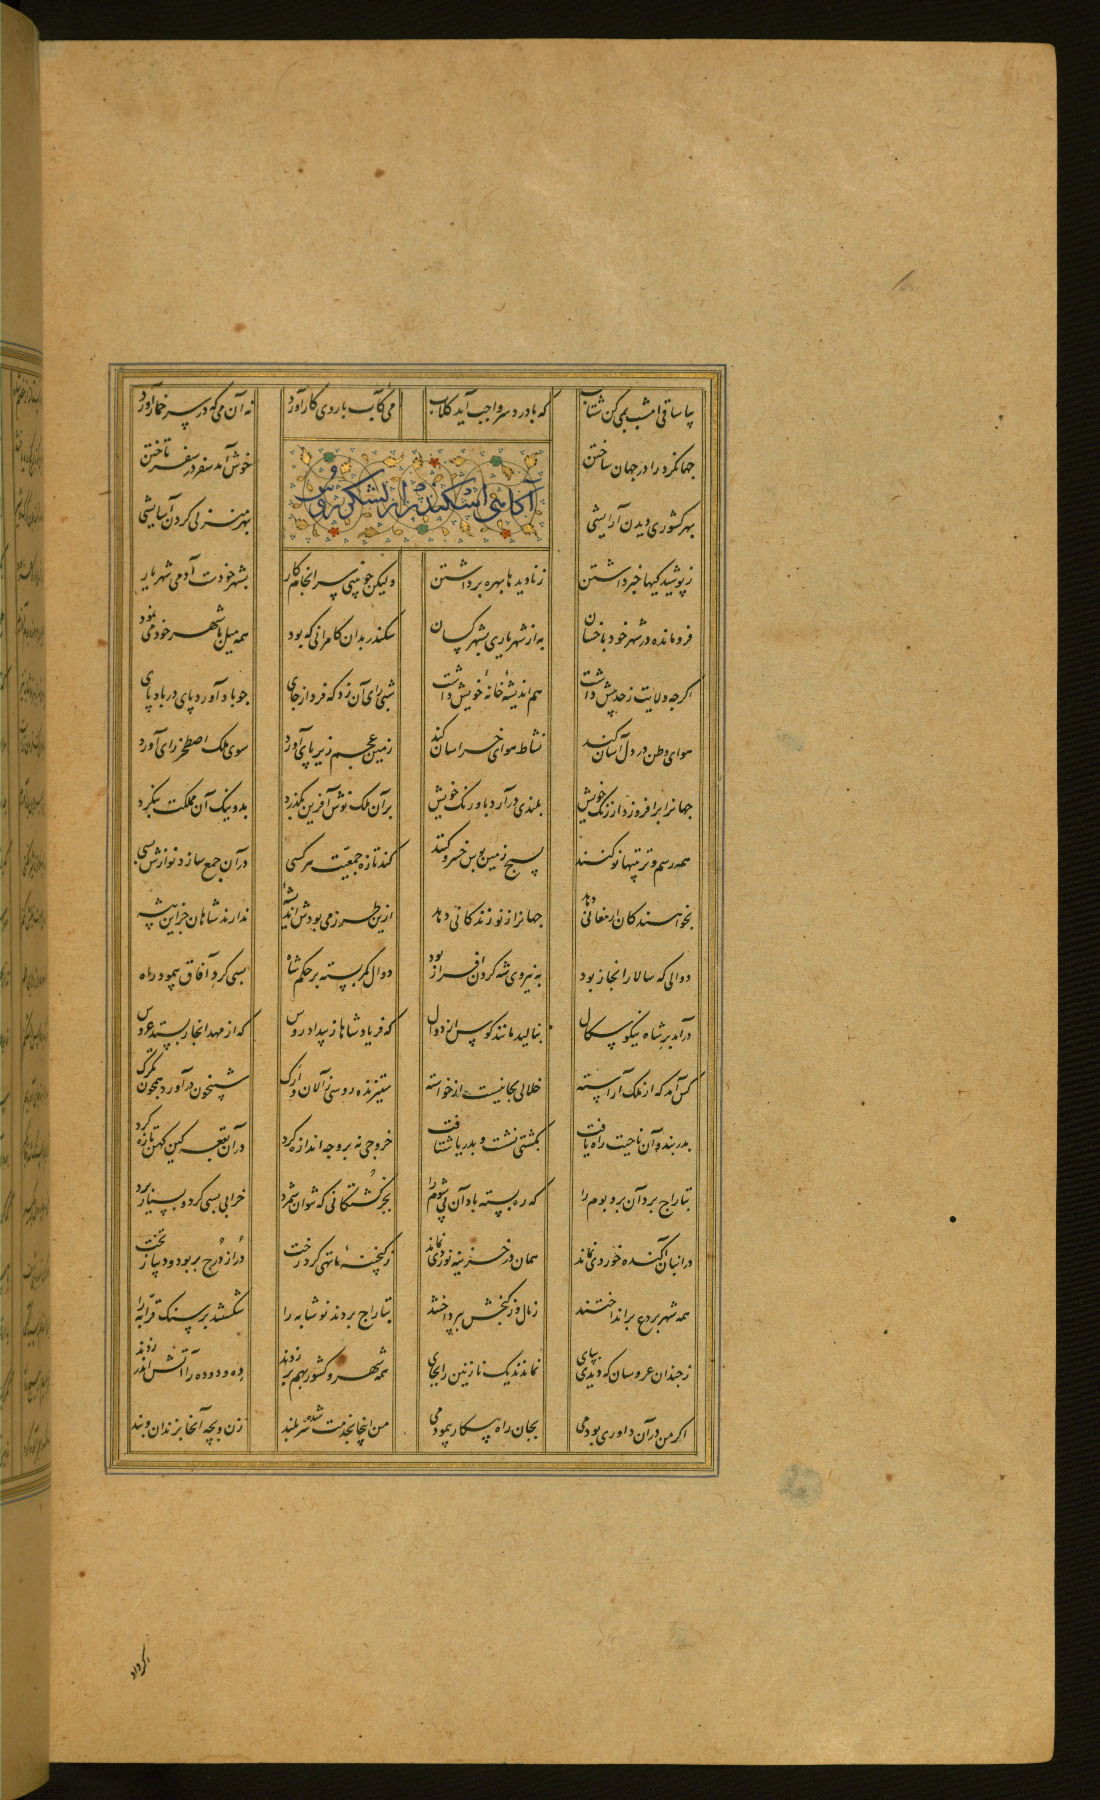 بیا ساقی امشب بمی کن شتاب
که با درد سر واجب آید کلاب
می کآب با روی کار آورد
نه آن می که در سر خمار آورد
آکاهی اسکندر از لشکر روس
جهانکرد را در جهان ساختن
خوش آمد سفر در سفر تاختن
بهر کشوری دیدن آرایشی
بهر منزلی کردن آسایشی
ز پوشیدکیها خبر داشتن
ز نادیدها بهره برداشتن
ولیکن چو بینی سرانجام کار
بشهر خودست آدمی شهریار
فرومانده در شهر خود با خسان
به از شهریاری بشهر کسان
سکندر بدان کامرانی که بود
همه میل با شهر خود می نمود
اکرچه ولایت ز حد بیش داشت
هم اندیشهٔ خانهٔ خویش داشت
شبی رای آن زد که فردا ز جای
چو باد آورد پای در باد پای
هوای وطن در دل آسان کند
نشاط هوای خراسان کند
زمین عجم زیر پای آورد
سوی ملک اصطخر رای آورد
جهانرا برافروزد از رنک خویش
بلندی درآرد باورنک خویش
بر آن ملک نوش آفرین بکذرد
بد و نیک آن مملکت بنکرد
همه رسم و ترتیبها نو کنند
بسیج زمین بوس خسرو کنند
کند تازه جمعیت هر کسی
در آن جمع سازد نوازش بسی
بخواهندکان ارمغانی دهد
جهانرا ز نو زندکانی دهد
ازین طرز می بودش اندیشهٔ
ندارند شاهان جز این پیشه
دوالی که سالار انجاز بود
به نیروی شه کردن افراز بود
دوال کمر بسته بر حکم شاه
بسی کرد آفاق پیمود راه
درآمد بر شاه نیکو سکال
بنالید مانند کوس از دوال
که فریاد شاها ز بیداد روس
که از مهد انجاز بستد عروس
کس آمد که از ملک آراسته
خلالی بجا نیست از خواسته
ستیزنده روسی ز آلان و ارک
شبیخون درآورد همچون تکرک
بدربند و آن ناحیت راه یافت
بکشتی نشست و بدریا شتافت
خروجی نه بر وجه اندازه کرد
در آن بقعه کین کهن تازه کرد
بتاراج برد آن بر و بوم را
که ره بسته باد آن پی شوم را
بجز کشتکانی که نتوان شمرد
خرابی بسی کرد و بسیار برد
در انبان آکنده خوردی نماند
همان در خزینه نوردی نماند
ز کنجینهٔ ما تهی کرد رخت
در از درج بربود و دیبا ز تخت
همه شهر بردع برانداختند
ز مال و ز کنجش بپرداختند
بتاراج بردند نوشابه را
شکستند بر سنک قرابه را
ز چندان عروسان که دیدی بپای
نماندند یک نازنین را بجای
همه شهر و کشور بهم بر زدند
ده و دوده را آتش اندر زدند
اکر من در آن داوری بودمی
بجان راه پیکار پیمودمی
من اینجا بخدمت شده سربلند
زن و بچه آنجا بزندان و بند
اکر داد